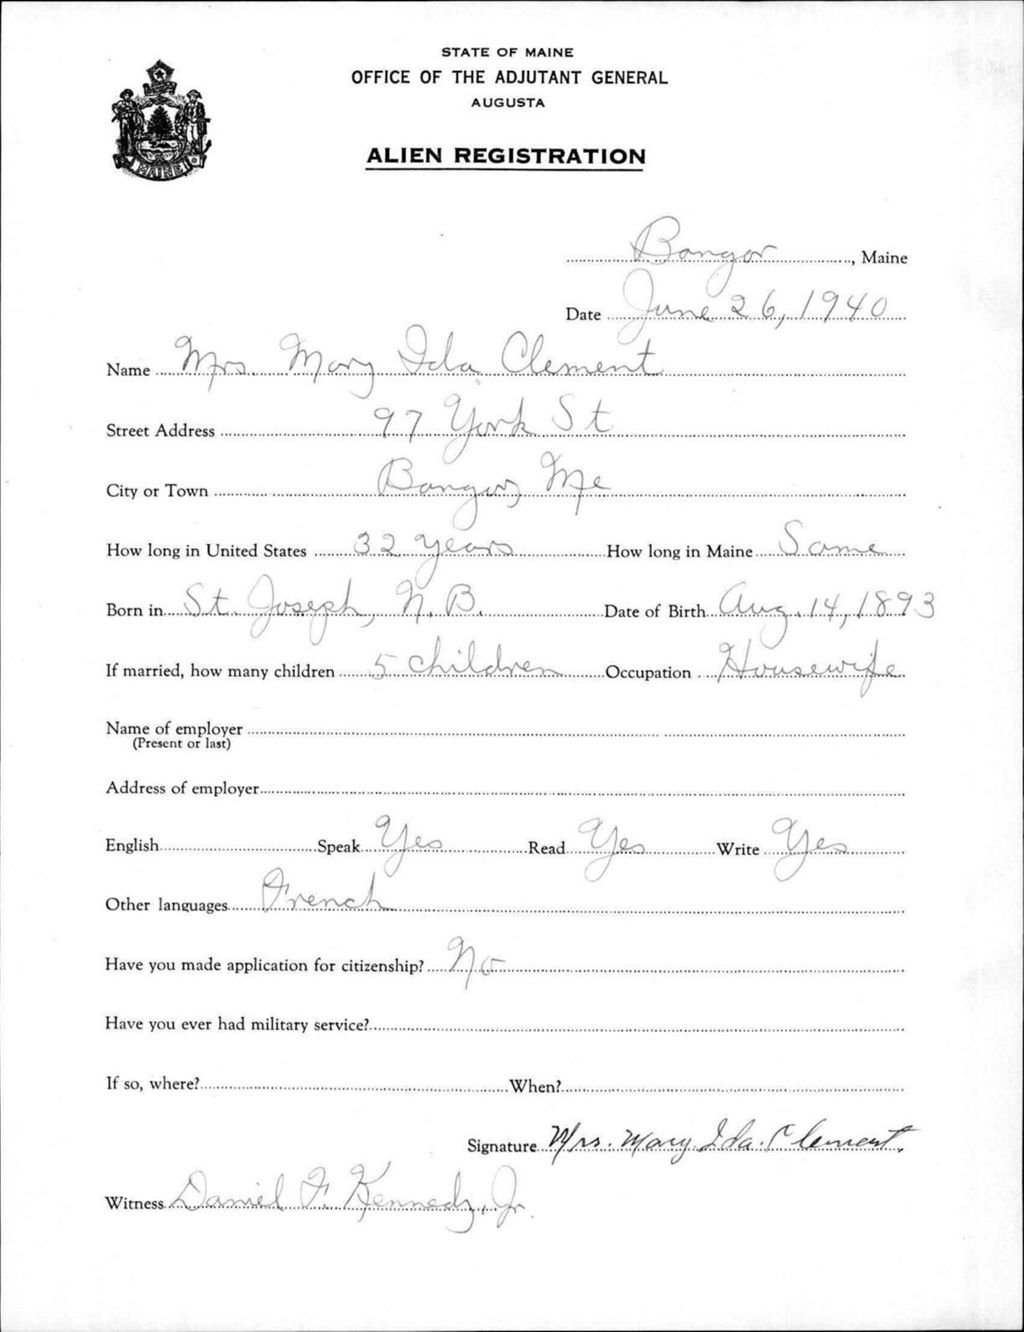 STATE OF MAINE
OFFICE OF THE ADJUTANT GENERAL
AUGUSTA
ALIEN REGISTRATION
MAINE
Bangor, Maine
Date June 26, 1940
Name Mrs. Mary Ida Clement
Street Address 97 York St
City or Town Bangor, Me
How long in United States 32 years How long in Maine Same
Born in St. Joseph, N.B. Date of Birth Aug. 14, 1893
If married, how many children 5 children Occupation Housewife
Name of employer
(Present or last)
Address of employer
English Speak Yes Read Yes Write Yes
Other languages French
Have you made application for citizenship? No
Have you ever had military service?
If so, where? When?
Signature Mrs. Mary Ida Clement.
Witness Daniel F. Kennedy, Jr.